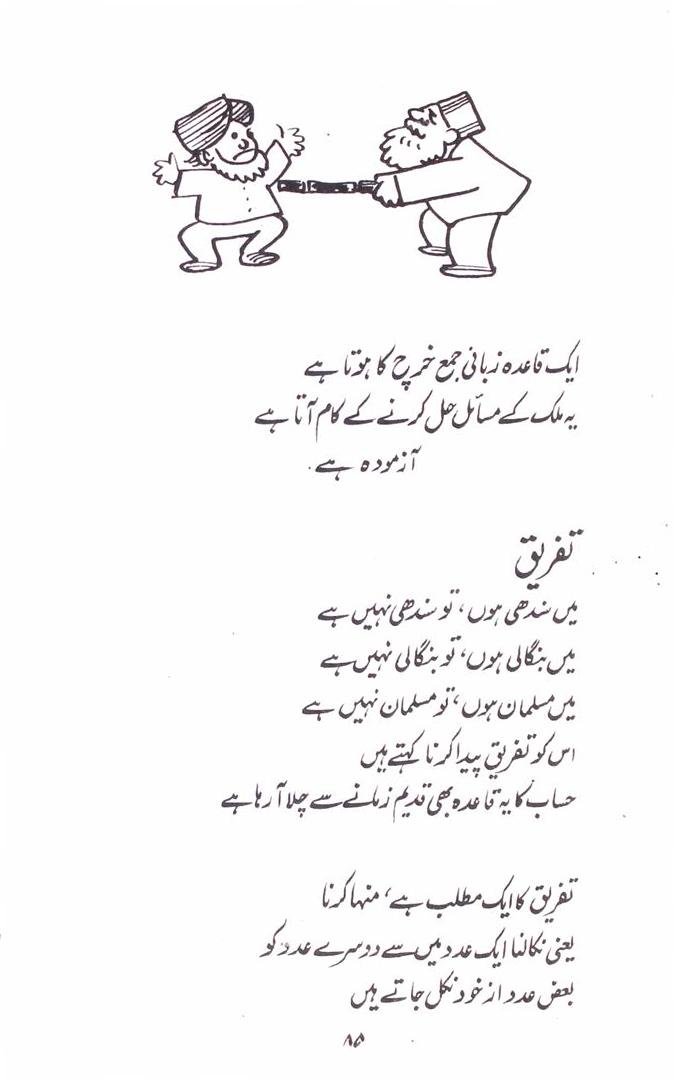 ایک قاعدہ زبانی جمع خرچ کا ہوتا ہے
یہ ملک کے مسائل حل کرنے کے کام آتا ہے
آزمودہ ہے.
تفریق
میں سندھی ہوں، تو سندھی نہیں ہے
میں بنگالی ہوں، تو بنگالی نہیں ہے
میں مسلمان ہوں، تو مسلمان نہیں ہے
اس کو تفریق پیدا کرنا کہتے ہیں
حساب کا یہ قاعدہ بھی قدیم زمانے سے چلا آ رہا ہے
تفریق کا ایک مطلب ہے، منہا کرنا
یعنی نکالنا ایک عدد میں سے دوسرے عدد کو
بعض عدد از خود نکل جاتے ہیں
۸۵